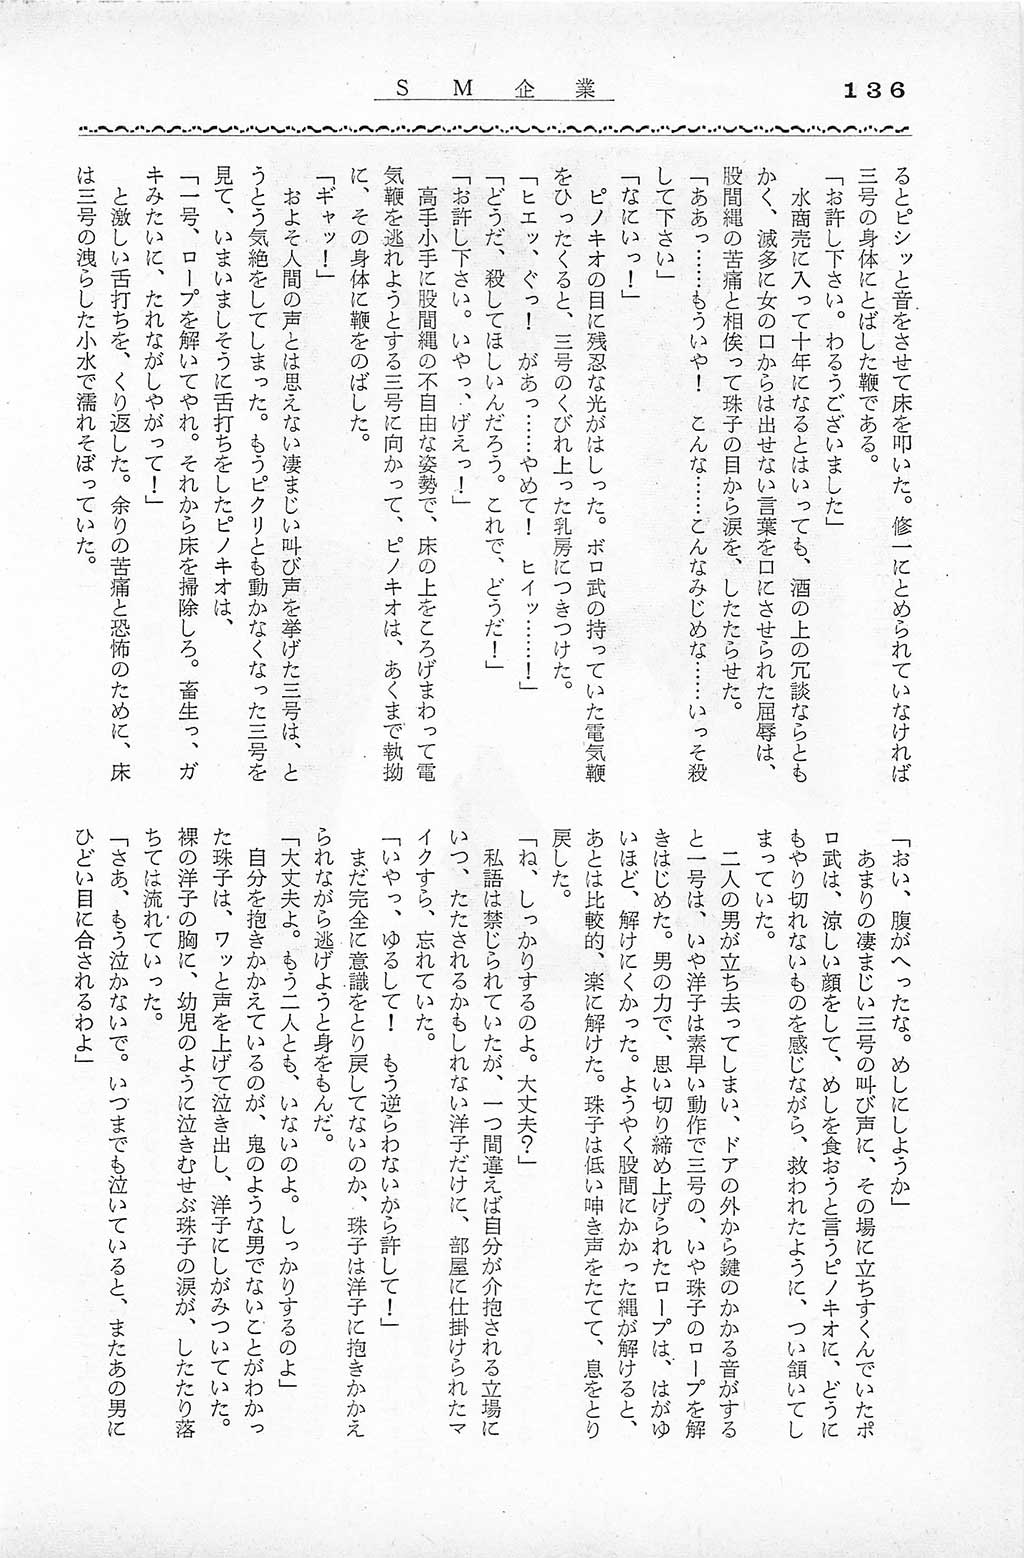 136
SM企業
るとピシッと音をさせて床を叩いた。修一にとめられていなければ
三号の身体にとばした鞭である。
「お許し下さい。わるうございました」
水商売に入って十年になるとはいっても、酒の上の冗談ならとも
かく、滅多に女の口からは出せない言葉を口にさせられた屈辱は、
股間縄の苦痛と相俟って珠子の目から涙を、したたらせた。
「ああっ……もういや！　こんな……こんなみじめな……いっそ殺
して下さい」
「なにいっ！」
ピノキオの目に残忍な光がはしった。ボロ武の持っていた電気鞭
をひったくると、三号のくびれ上った乳房につきつけた。
「ヒエッ、ぐっ！　があっ……やめて！　ヒイッ……！」
「どうだ、殺してほしいんだろう。これで、どうだ！」
「お許し下さい。いやっ、げえっ！」
高手小手に股間縄の不自由な姿勢で、床の上をころげまわって電
気鞭を逃れようとする三号に向かって、ピノキオは、あくまで執拗
に、その身体に鞭をのばした。
「ギャッ！」
およそ人間の声とは思えない凄まじい叫び声を挙げた三号は、と
うとう気絶をしてしまった。もうピクリとも動かなくなった三号を
見て、いまいましそうに舌打ちをしたピノキオは、
「一号、ロープを解いてやれ。それから床を掃除しろ。畜生っ、ガ
キみたいに、たれながしやがって！」
と激しい舌打ちを、くり返した。余りの苦痛と恐怖のために、床
は三号の洩らした小水で濡れそぼっていた。
「おい、腹がへったな。めしにしようか」
あまりの凄まじい三号の叫び声に、その場に立ちすくんでいたボ
ロ武は、涼しい顔をして、めしを食おうと言うピノキオに、どうに
もやり切れないものを感じながら、救われたように、つい頷いてし
まっていた。
二人の男が立ち去ってしまい、ドアの外から鍵のかかる音がする
と一号は、いや洋子は素早い動作で三号の、いや珠子のロープを解
きはじめた。男の力で、思い切り締め上げられたロープは、はがゆ
いほど、解けにくかった。ようやく股間にかかった縄が解けると、
あとは比較的、楽に解けた。珠子は低い呻き声をたてて、息をとり
戻した。
「ね、しっかりするのよ。大丈夫？」
私語は禁じられていたが、一つ間違えば自分が介抱される立場に
いつ、たたされるかもしれない洋子だけに、部屋に仕掛けられたマ
イクすら、忘れていた。
「いやっ、ゆるして！　もう逆らわないから許して！」
まだ完全に意識をとり戻してないのか、珠子は洋子に抱きかかえ
られながら逃げようと身をもんだ。
「大丈夫よ。もう二人とも、いないのよ。しっかりするのよ」
自分を抱きかかえているのが、鬼のような男でないことがわかっ
た珠子は、ワッと声を上げて泣き出し、洋子にしがみついていた。
裸の洋子の胸に、幼児のように泣きむせぶ珠子の涙が、したたり落
ちては流れていった。
「さあ、もう泣かないで。いつまでも泣いていると、またあの男に
ひどい目に合されるわよ」